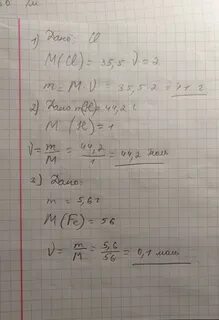 1) Дано: Cl
M(Cl) = 35,5 ν = 2
m = M ν = 35,5 · 2 = 71 г
2) Дано m(H) = 44,2 г
M (H) = 1
ν = m/M = 44,2/1 = 44,2 моль
3) Дано:
m = 5,6 г
M (Fe) = 56
ν = m/M = 5,6/56 = 0,1 моль